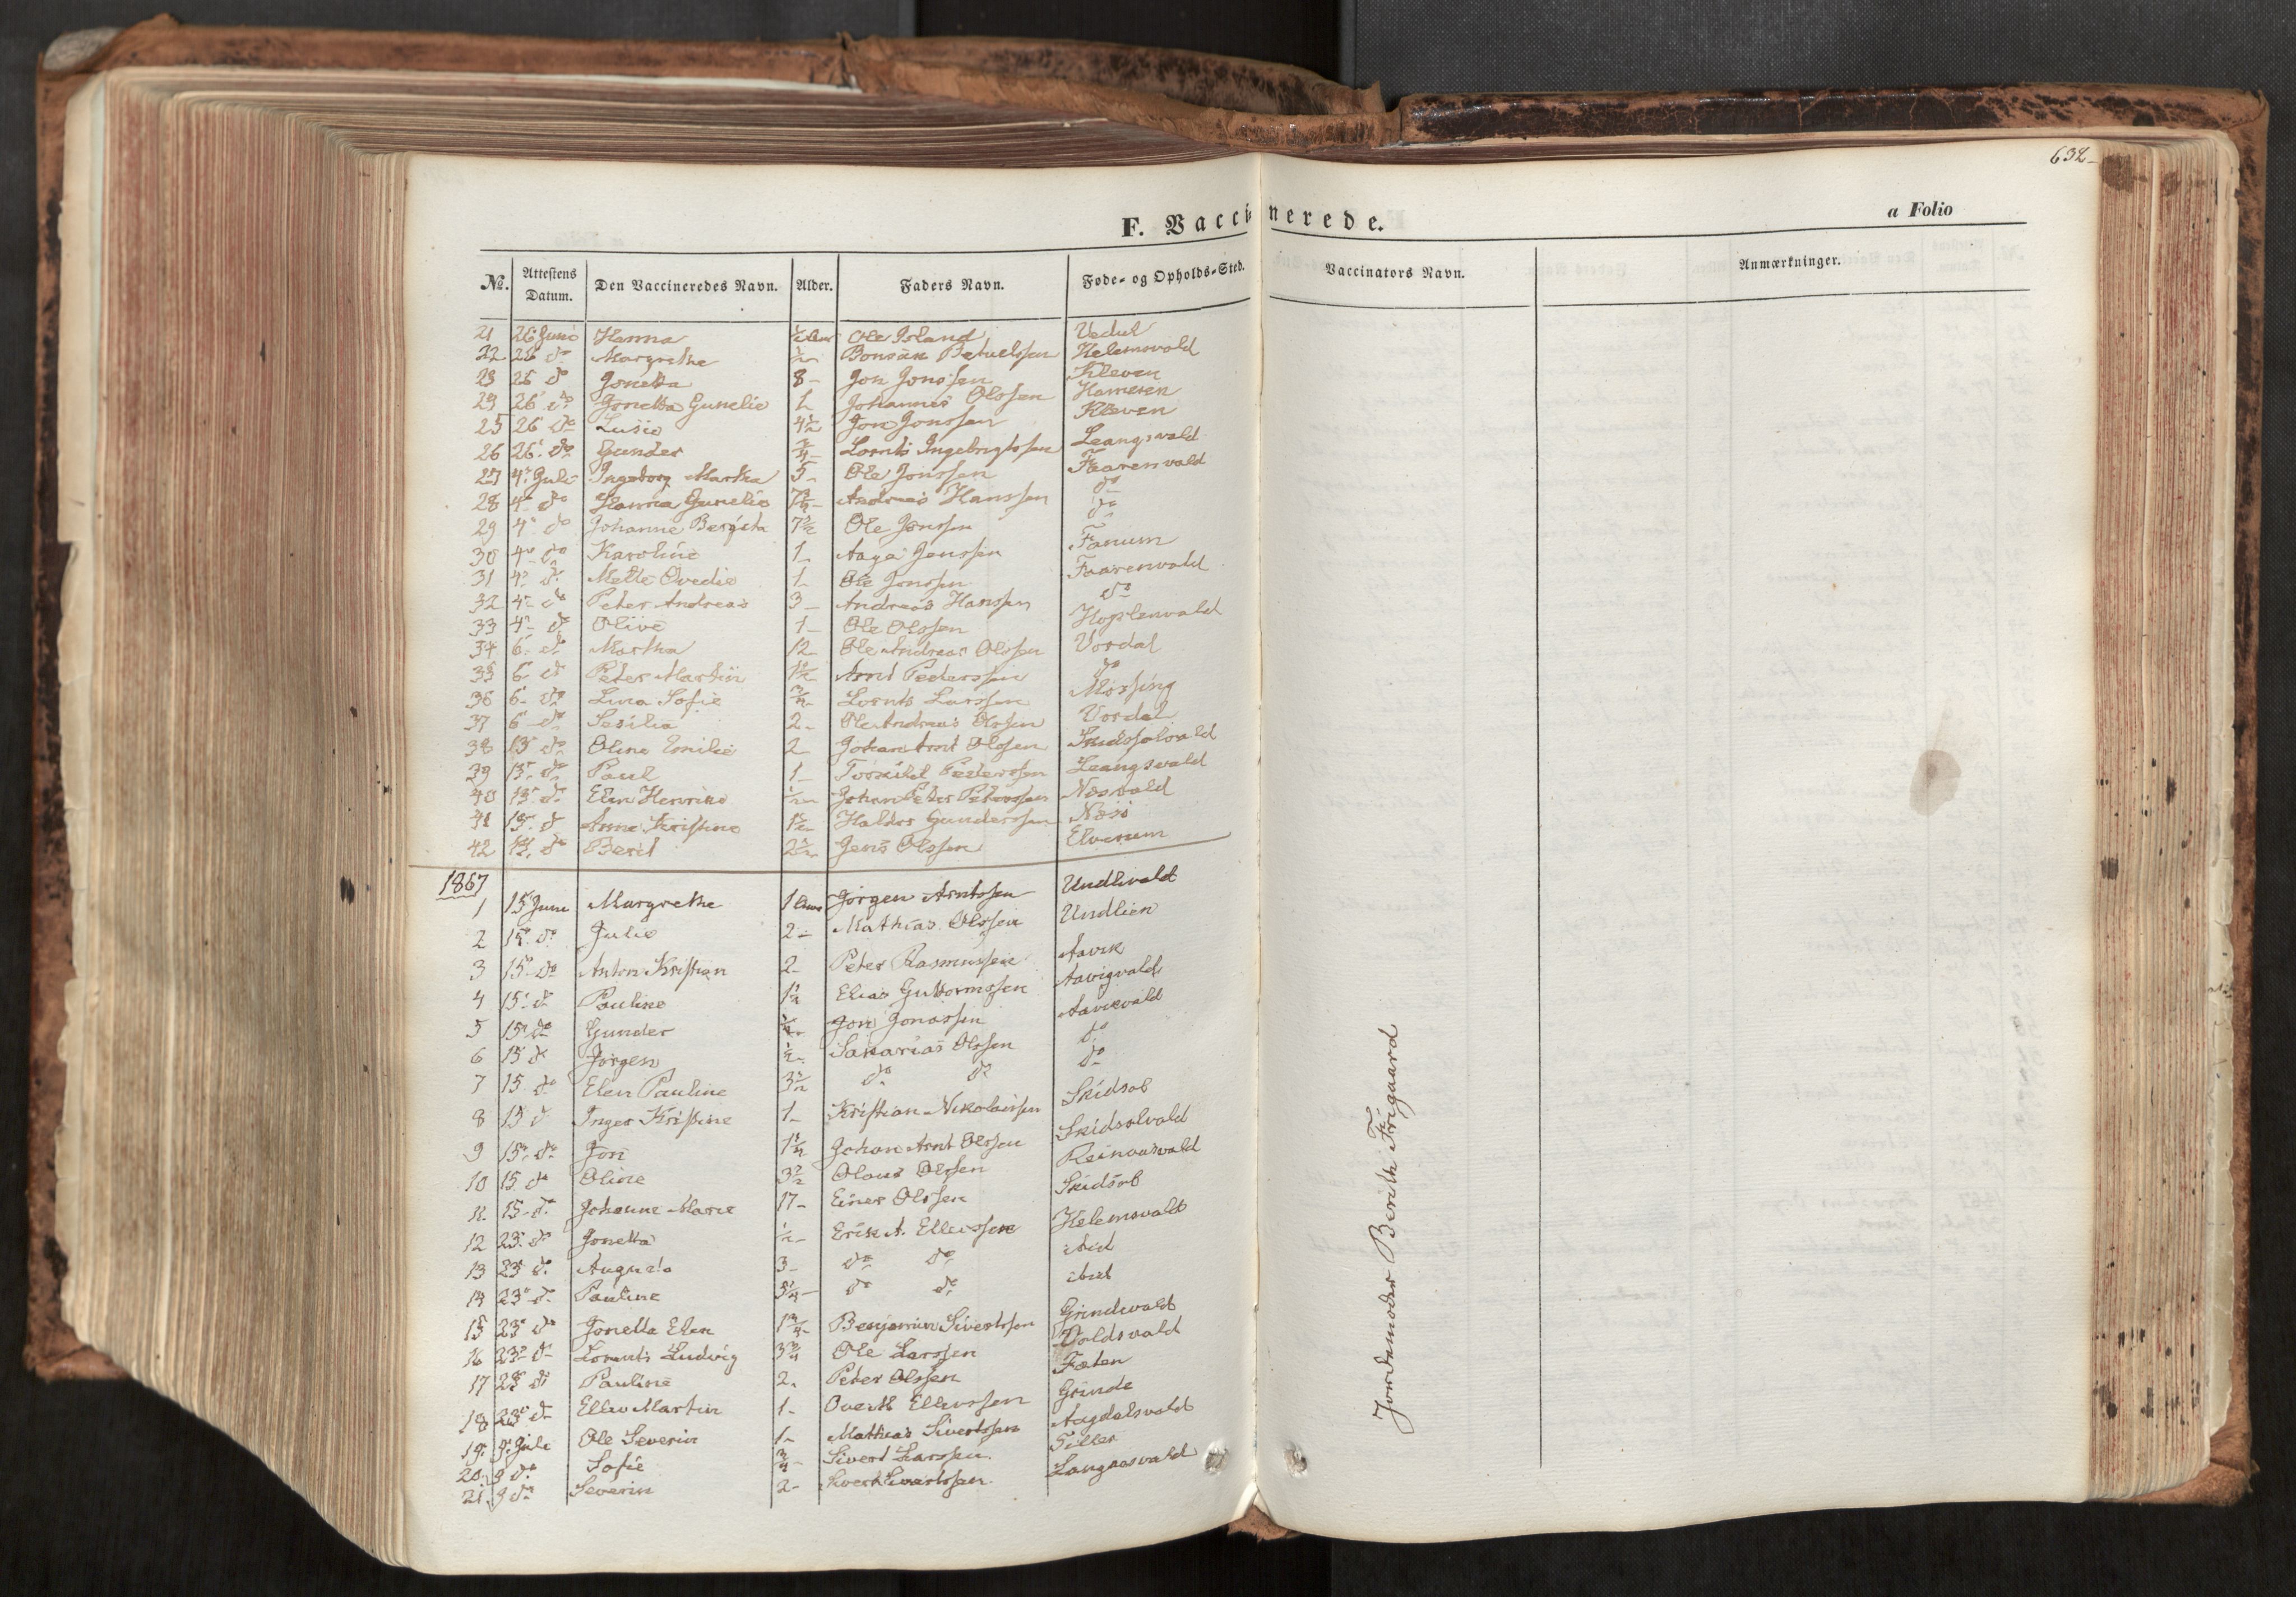 632
F. Vaccinerede.
a Folio
No. Attestens Datum. Den Vaccineredes Navn. Alder. Faders Navn. Føde- og Opholds-Sted. Vaccinators Navn. Anmærkninger.
21 26 Juni Hanna Ole Island Vedul
22 26 do Margrethe ½ Betuelssen Helemsvald
23 26 do Jonetta 8- Jon Jonssen Kleven
24 26 do Jonetta Gunelie 1 Johannes Olssen Hameren
25 26 do Lusie 4½ Jon Jonssen Kleven
26 26 do Gunder ¾ Lornts Ingebrigtssen Leangsvald
27 4 Juli Ingeborg Martha 5- Ole Jonssen Faarenvald
28 4 do Hanna Gunelie Andreas Hanssen do
29 4 do Johanne 7½ Ole Jonssen do
30 4 do Karoline 1- Aaga Janssen Fanum
31 4 do Mette Ovedie 1- Ole Jonssen Faarenvald
32 4 do Peter Andreas 3- Andreas Hanssen do
33 4 do Olive 1- Ole Olssen Hoplenvald
34 6 do Martha 12 Ole Andreas Olssen Vordal
35 6 do Peter Martin 1½ Arnt Pederssen do
36 6 do Lina Sofie ¾ Lornts Larssen Mossing
37 6 do Sesilia 2- Ole Andreas Olssen Vordal
38 13 do Oline Emilie 2- Johan Arnt Olssen
39 13 do Paul 1- Torkild Pederssen Leangsvald
40 13 do Elen Henrike ½ Johan Peter Peterssen Næsvald
41 13 do Anne Kristine 1½ Haldor Gunderssen Næss
42 14 do Berit 2½ Jens Olssen Elverum
1867
1 15 Juni Margrethe 1 Jørgen Arntssen Undlivald
2 15 do Julie 2- Mathias Olssen Undlien
3 15 do Anton Kristian 2- Peter Rasmussen Aavik
4 15 do Pauline 1½ Elias Guttormssen Aavigvald
5 15 do Gunder Jon Jonassen Aavikvald
6 15 do Jørgen ½ Sakarias Olssen do
7 15 do Elen Pauline 3½ do do do
8 15 d Inger Kristine 1- Kristian Nikolaissen Skidsol
9 15 do Jon 1½ Johan Arnt Olssen Skidsolvald
10 15 do Oline 3½ Olaus Olssen Reinaasvald
11 15 do Johanne Marie 17- Einer Olssen Skidsol
12 23 do Jonetta ½ Erik A. Ellevssen Helemsvald
13 23 do Augusta 3- do do ibid
14 23 do Pauline do do ibid
15 23 do Jonetta Elen 1¾ Benjamin Sivertssen Grindvald
16 23 do Lornts Ludvig 3¾ Ole Larssen Voldsvald
17 23 do Pauline 2. Peter Olssen Fæten
18 23 do Ellev Martin 1- Ove M. Ellevssen Grinde
19 9 Juli Ole Severin 1- Mathias Sivertssen Aagdalsvald
20 9 do Sofie ¾ Sivert Larssen Tiller
21 9 do Severin 2- Sivert Sivertssen Langaasvald
Jordemoder Berith Frigaard